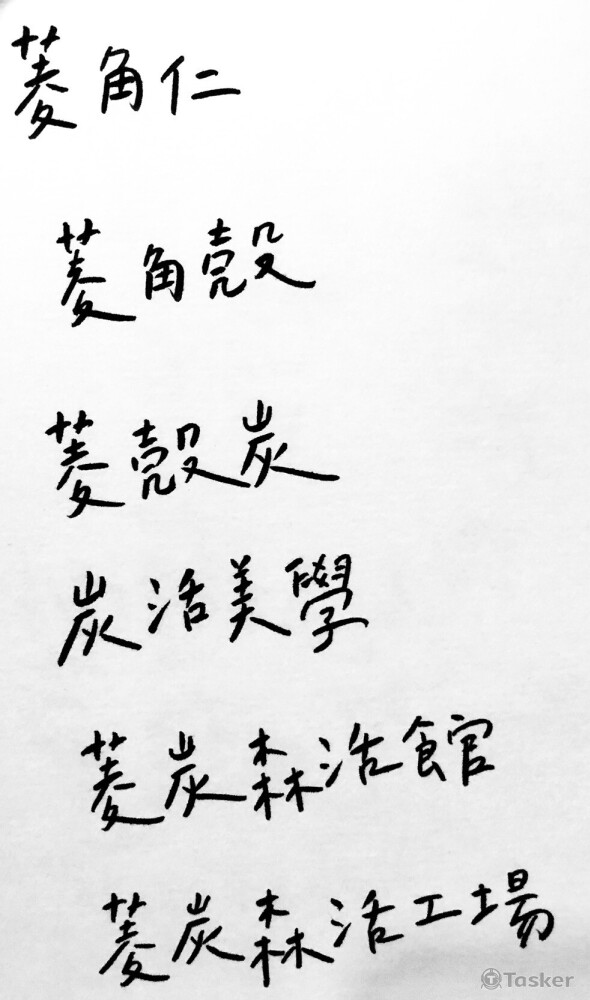 菱角仁
菱角殼
菱殼炭
炭活美學
菱炭森活館
菱炭森活工場
Tasker